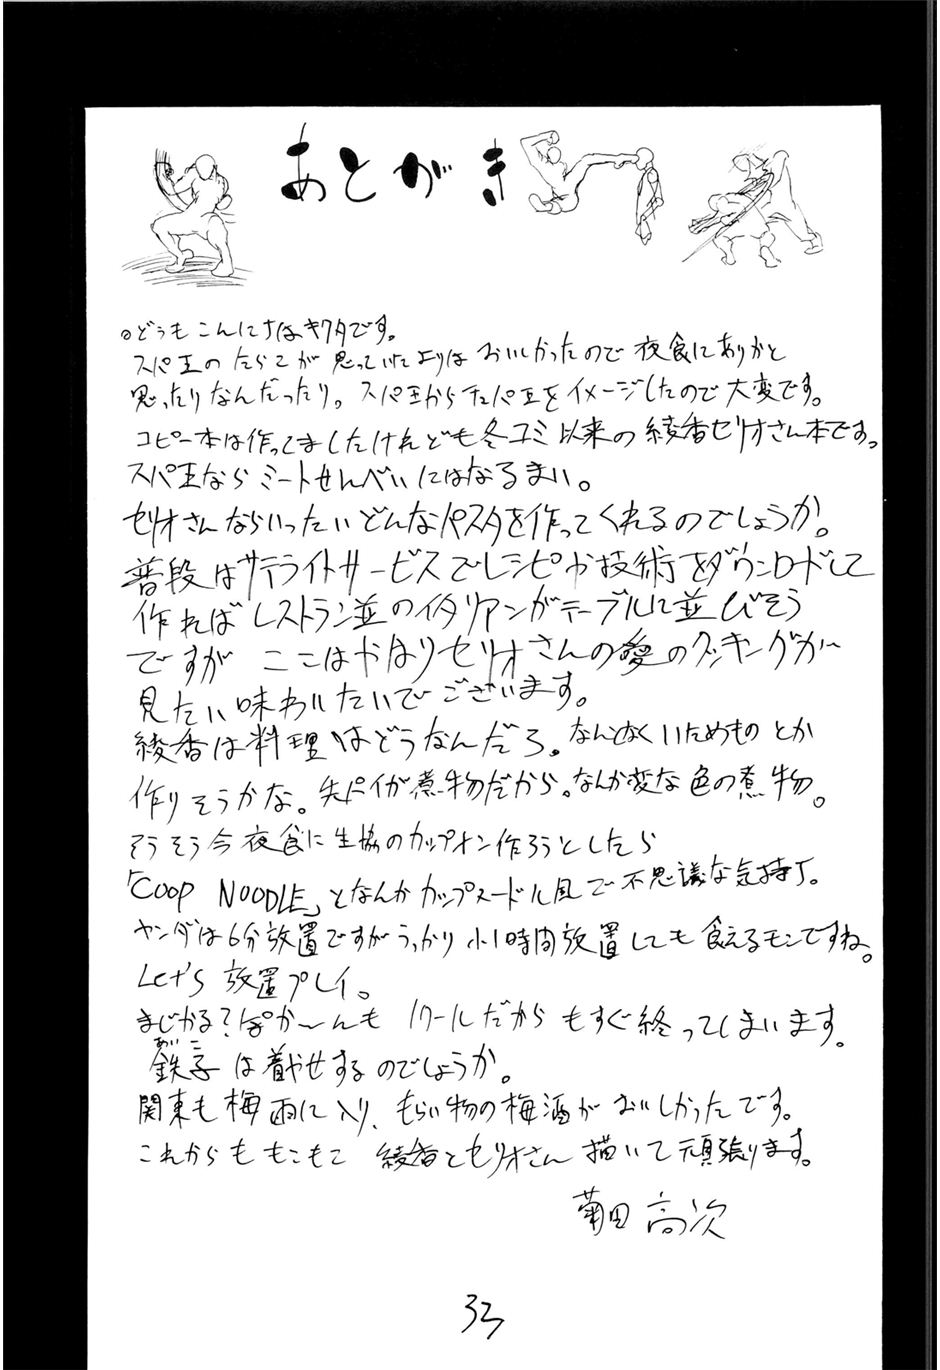 あとがき
○どうもこんにちはキクタです。
スパ王のたらこが思っていたよりはおいしかったので夜食にありかと
思ったりなんだったり。スパ王からスパ王をイメージしたので大変です。
コピー本は作ってましたけれども冬コミ以来の綾香セリオさん本です。
スパ王ならミートせんべいにはなるまい。
セリオさんならいったいどんなパスタを作ってくれるのでしょうか。
普段はサテライトサービスでレシピか技術をダウンロードして
作ればレストラン並のイタリアンがテーブルに並びそう
ですが ここはやはりセリオさんの愛のクッキングが
見たい味わいたいでございます。
綾香は料理はどうなんだろ。なんとなくいためものとか
作りそうかな。先パイが煮物だから。なんか変な色の煮物。
そうそう今夜食に生協のカップオン作ろうとしたら
「COOP NOODLE」となんかカップヌードル風で不思議な気持ち。
ヤンダは6分放置ですがうっかり小1時間放置しても食えるモンですね。
Let's 放置プレイ。
まじかる?ぽか〜んも 1クールだからもすぐ終ってしまいます。
鉄子は着やせするのでしょうか。
関東も梅雨に入り、もらい物の梅酒がおいしかったです。
これからももこもこ 綾香とセリオさん描いて頑張ります。
菊田 高次
33